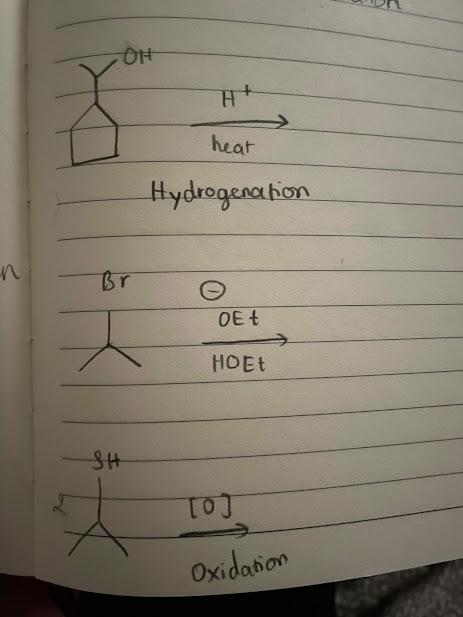 OH
H+
heat
Hydrogenation
Br
⊖
OEt
HOEt
SH
2
[O]
Oxidation
n